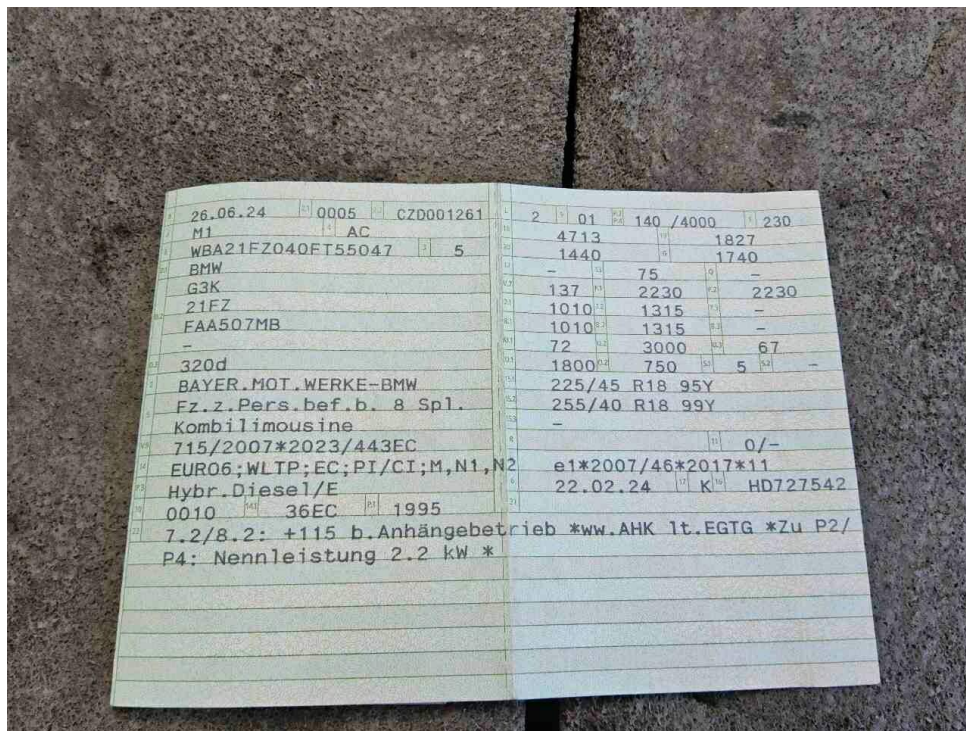 26.06.24 0005 CZD001261
M1 AC
WBA21FZ040FT55047 5
BMW
G3K
21FZ
FAA507MB
–
320d
BAYER.MOT.WERKE-BMW
Fz.z.Pers.bef.b. 8 Spl.
Kombilimousine
715/2007*2023/443EC
EURO6;WLTP;EC;PI/CI;M,N1,N2
Hybr.Diesel/E
0010 36EC 1995
2 01 140 /4000 230
4713 1827
1440 1740
– 75 –
137 2230 2230
1010 1315 –
1010 1315 –
72 3000 67
1800 750 5 –
225/45 R18 95Y
255/40 R18 99Y
–
0/–
e1*2007/46*2017*11
22.02.24 K HD727542
7.2/8.2: +115 b.Anhängebetrieb *ww.AHK lt.EGTG *Zu P2/
P4: Nennleistung 2.2 kW *